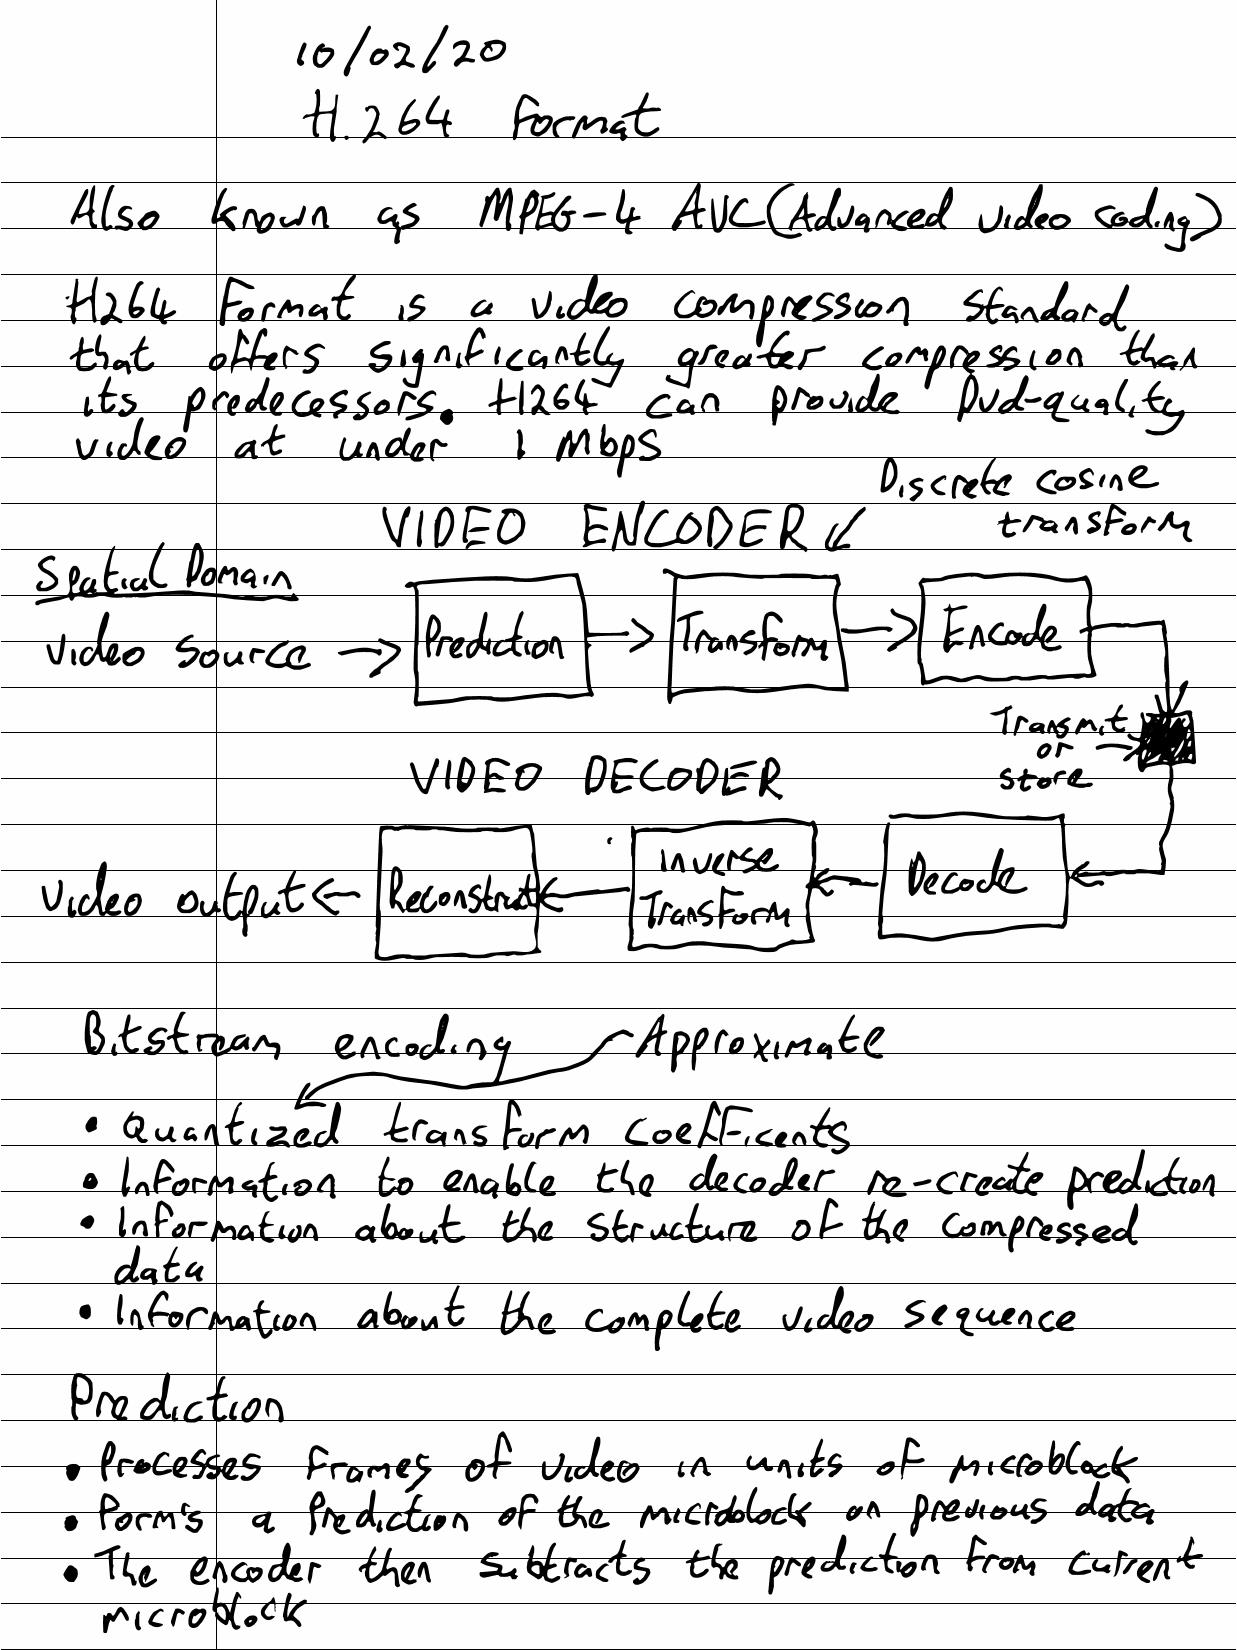 10/02/20
H.264 Format
Also known as MPEG-4 AVC (Advanced video coding)
H264 Format is a video compression standard
that offers significantly greater compression than
its predecessors. H264 can provide Dvd-quality
video at under 1 Mbps
Discrete cosine
transform
VIDEO ENCODER
Spatial Domain
video source
Prediction
Transform
Encode
Transmit
or
store
VIDEO DECODER
video output
Reconstruct
inverse
Transform
Decode
Bitstream encoding
Approximate
• Quantized transform coefficents
• Information to enable the decoder re-create prediction
• Information about the structure of the compressed
data
• Information about the complete video sequence
Prediction
• Processes frames of video in units of microblock
• Form's a prediction of the microblock on previous data
• The encoder then subtracts the prediction from current
microblock